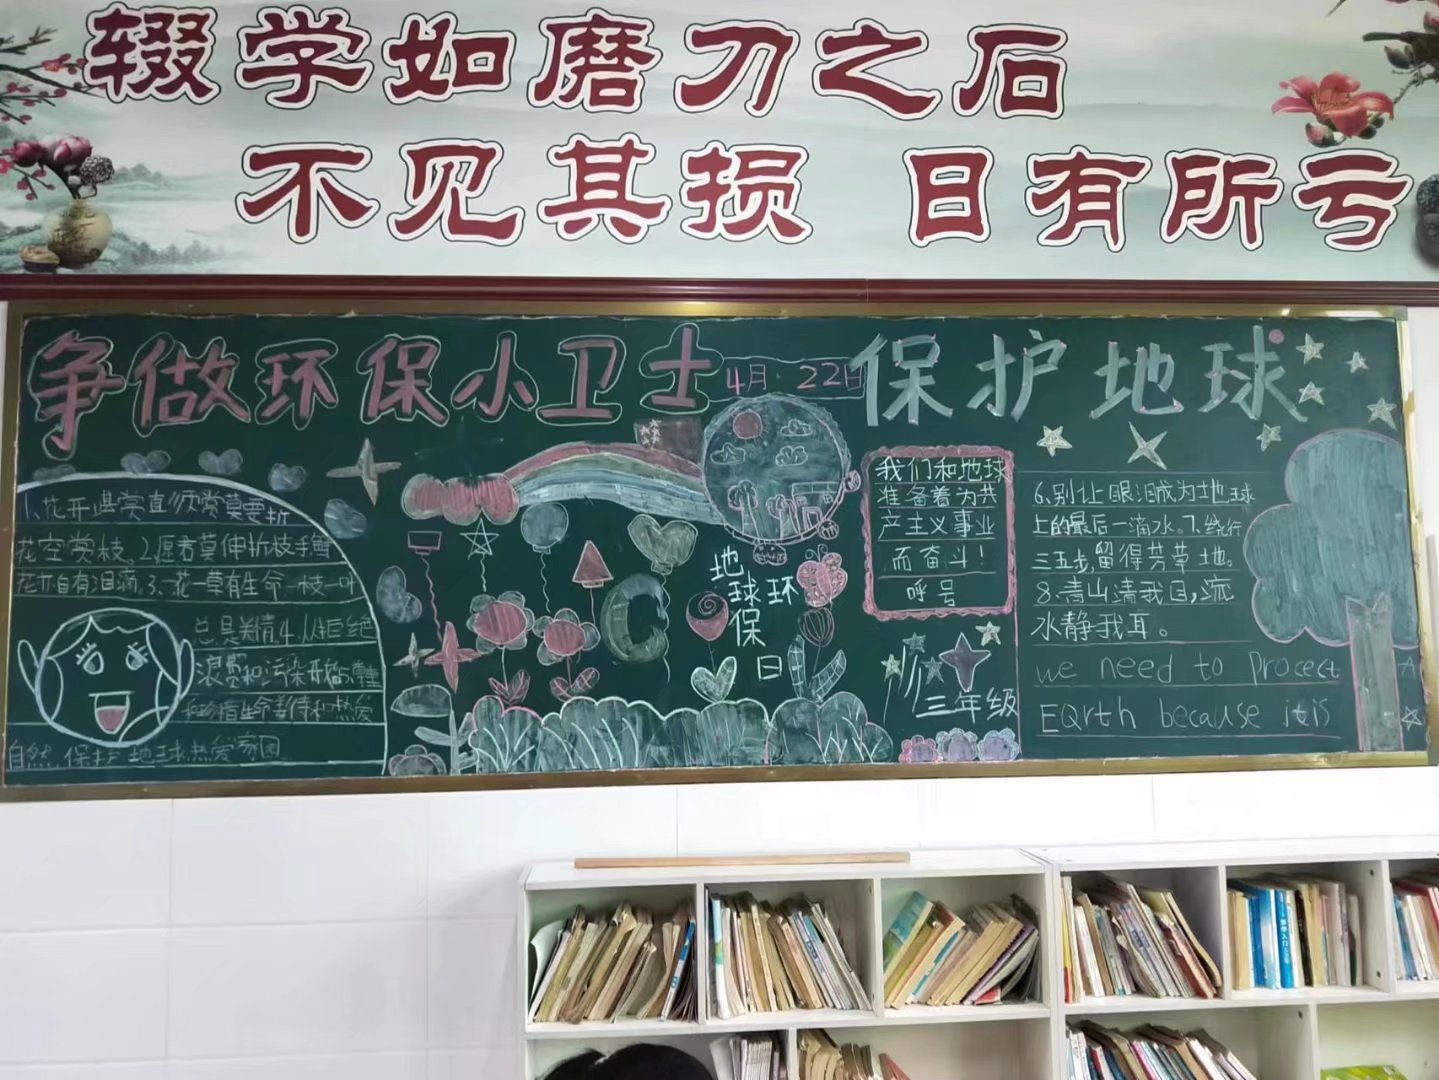 辍学如磨刀之石
不见其损 日有所亏
争做环保小卫士
4月·22日
保护地球
1.花开堪赏直须赏莫要折
花空赏枝。2.愿君莫伸折枝手鲜
花亦自有泪滴。3.一花一草有生命一枝一叶
总是关情4.从拒绝
浪费和污染开始
和珍惜生命善待和热爱
自然。保护地球热爱家园
地球环保日
我们和地球
准备着为共
产主义事业
而奋斗！
呼号
三年级
6.别让眼泪成为地球
上的最后一滴水。7.绕行
三五步，留得芳草地。
8.青山清我目，流
水静我耳。
we need to procect
EQrth because itis